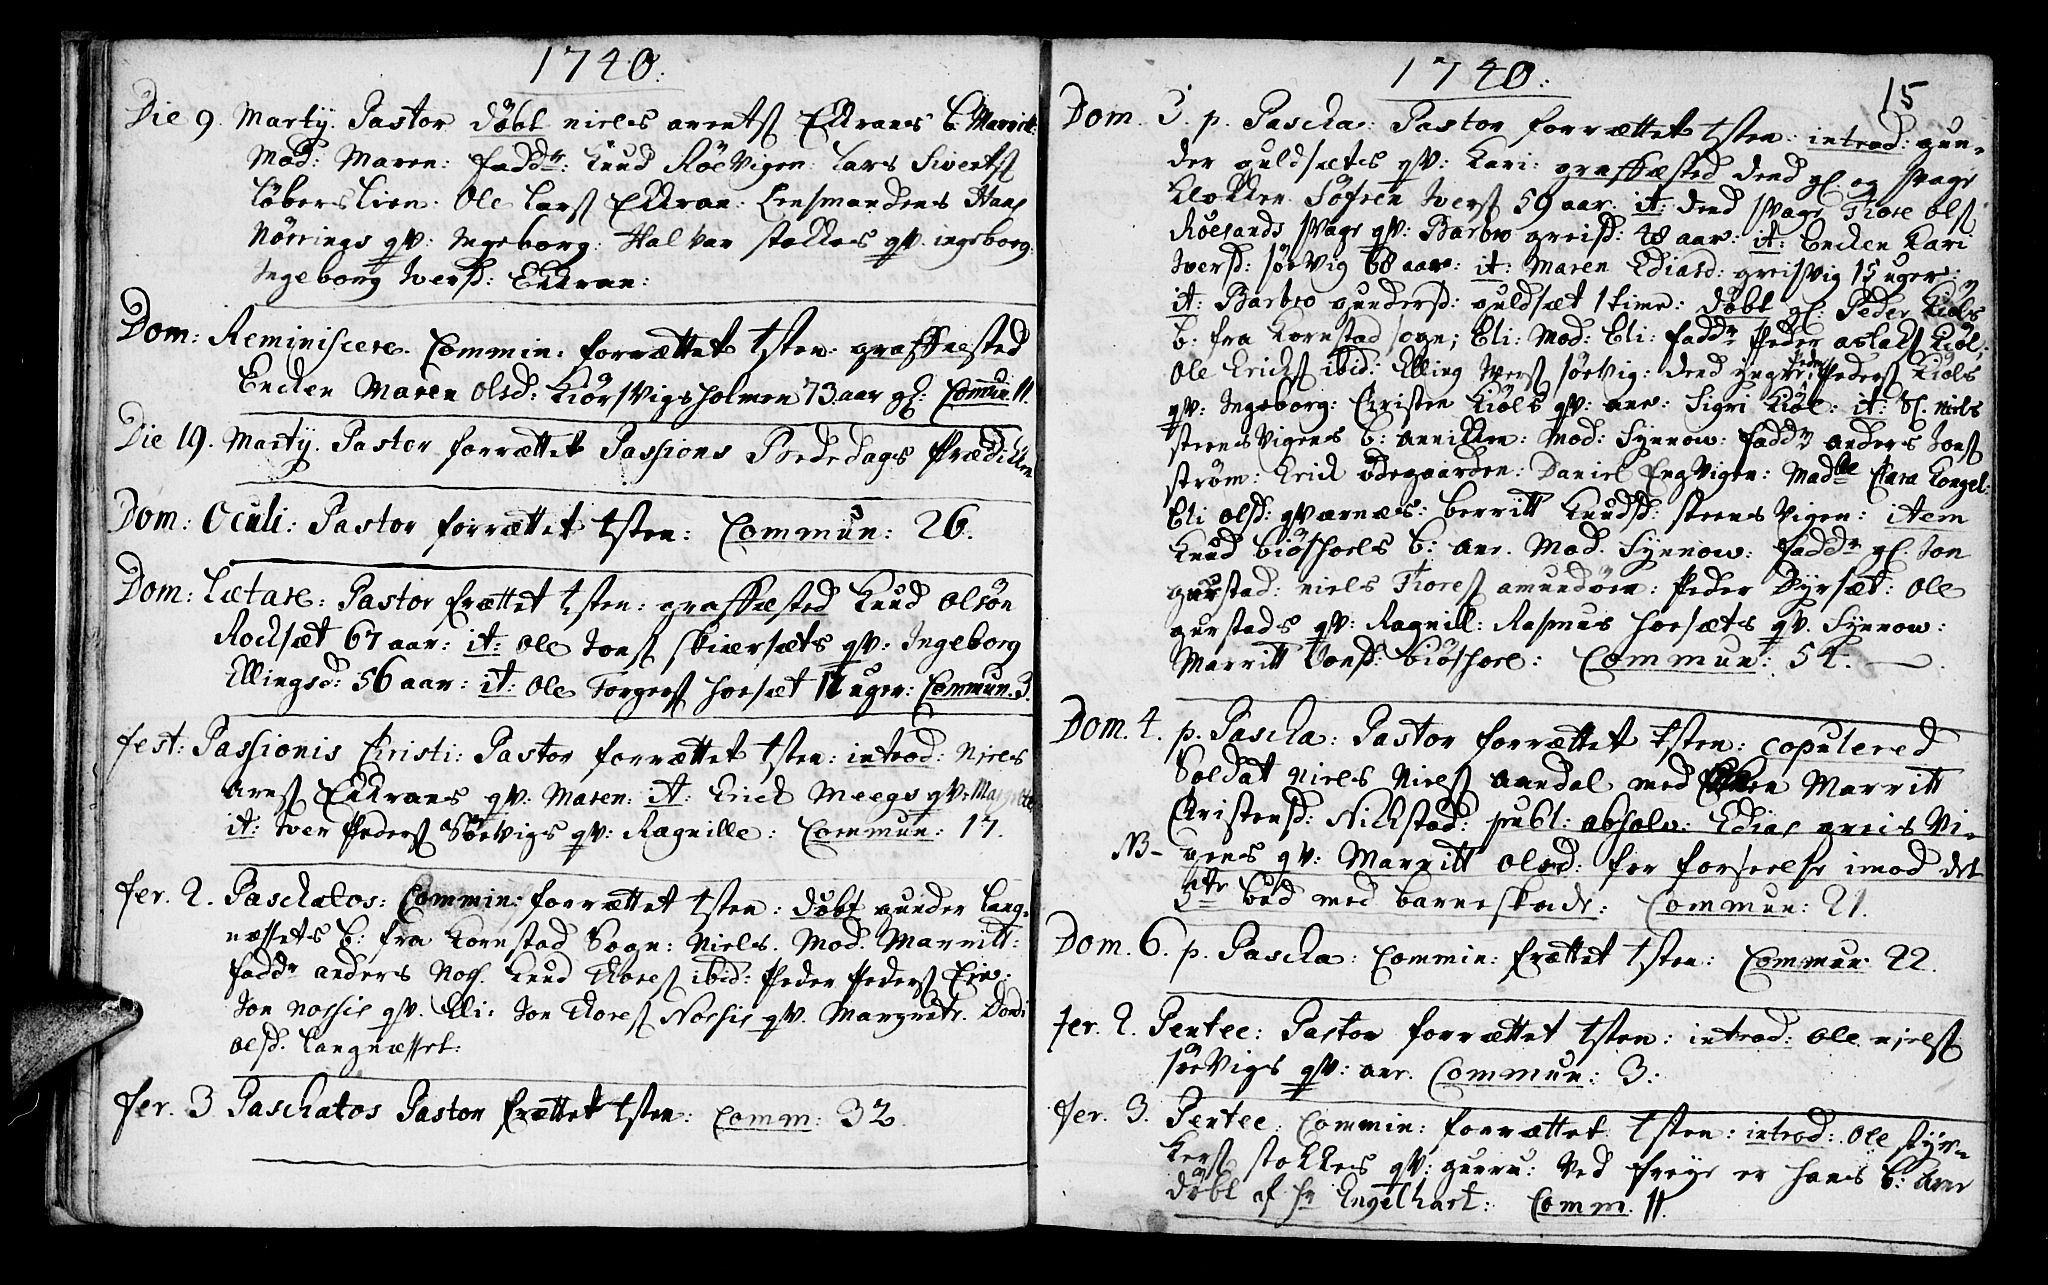 1740:
Die 9. Martij. Pastor döbt niels arentS Ekkrans b. Marritt:
Mod: Maren: fadd: Knud Röe Vigen: Lars SivertS
Löbers Lien: Ole LarS Ekkran: Lensmandens Hans
Nörrings qv: Ingeborg: Halvar stokkes qv. ingeborg:
Ingeborg Iversd: Ekkran:
Dom: Reminiscere. Commin: forrættet tsten: graffæsted
Encken Maren Olsd: Kiörsvigsholmen 73 aar gl: Commun 11.
Die 19. Martij. Pastor forrættet Passions Bededags Prædicken
Dom: Oculi: Pastor forrættet tsten: Commun: 26.
Dom: Lætare: Pastor frættet tsten: graffæsted Knud Olsön
Rocksæt 67 aar: it: Ole JonS skiærsæts qv: Ingeborg
Ellingsd: 56 aar: it: Ole TorgerS horsæt uger: Commun. 3.
fest: Passionis Christi: Pastor forrættet tsten: introd: Niels
arnS Ekkrans qv: Maren: it: Erick Meegs qv: Margrette
it: Iver PederS Sörvigs qv: Ragnille: Commun: 17.
fer. 2. Paschatos: Commin: forrættet tsten: döbt gunder Lang-
næssets b: fra Kornstad Sogn: Niels. Mod. Marritt:
fadd anders Noss. Knud ToreS ibid: Peder PederS
Jon Nossis qv. Eli: Jon ToreS Nossis qv. Margrete. Dordi
Olsd. Langnæsset:
fer. 3 Paschatos Pastor frættet tsten: Comm: 32.
1740:
15
Dom. 3. p. Pascha: Pastor forrættet tsten: introd: gun-
der guldsæts qv: Kari: graffæsted dend gl og svage
Klokker Söfren IverS 59 aar. it: dend svage Tore OlS
Röesands svage qv: Barbro greisd: 48 aar: it: Encken Kari
Iversd: sörvig 68 aar: it: Maren Ediasd: greisvig 15 uger:
it: Barbro gundersd: guldsæt 1 time: döbt gl: Peder Kiöls
b: fra Kornstad sogn; Eli: Mod: Eli: fadd Peder aslakS Kiöl:
Ole ErickS ibid: Elling IverS sörvig: dend yngre Peder PederS Kiöls
qv: Ingeborg: Christen Kiöls qv: ane: Sigri Kiöl: it: Sl. niels
steens Vigens b: annikken: Mod: Synnow: fadd anders JonS
ström: Erick ödegaarden: Daniel Eng Vigen: Madme Clara Kongel:
Eli Olsd: qværnæs: berritt Knudsd: steens Vigen: item
Knud biöshoels b: ane. Mod. Synnow: fadd gl. Jon
gurstad: niels ToreS amundöen: Peder Dyrsæt: Ole
gurstads qv: Ragnill: Rasmus horsæts qv. Synnow:
Marritt Jonsd: biöshoel: Commun: 54.
Dom. 4. p. Pascha: Pastor forrættet tsten: Copulered
Soldat Niels NielS aandal med Marritt
Christensd: Nickstad: publ: absolv: Edias greis Vi-
NB- gens qv: Marritt Olsd: for forseelse imod det
5te bud med barneskade: Commun: 21.
Dom. 6. p. Pascha: Commin: frættet tsten: Commun: 22.
fer. 2. Pentec: Pastor forrættet tsten: introd: Ole nielS
sörVigs qv: ane. Commun: 3.
fer. 3. Pentec: Commin: forrættet tsten: introd: Ole styr-
KerS stokkes qv: guru: Ved freye er hans b: Arne
döbt af hr Engelhart: Comm. 11.